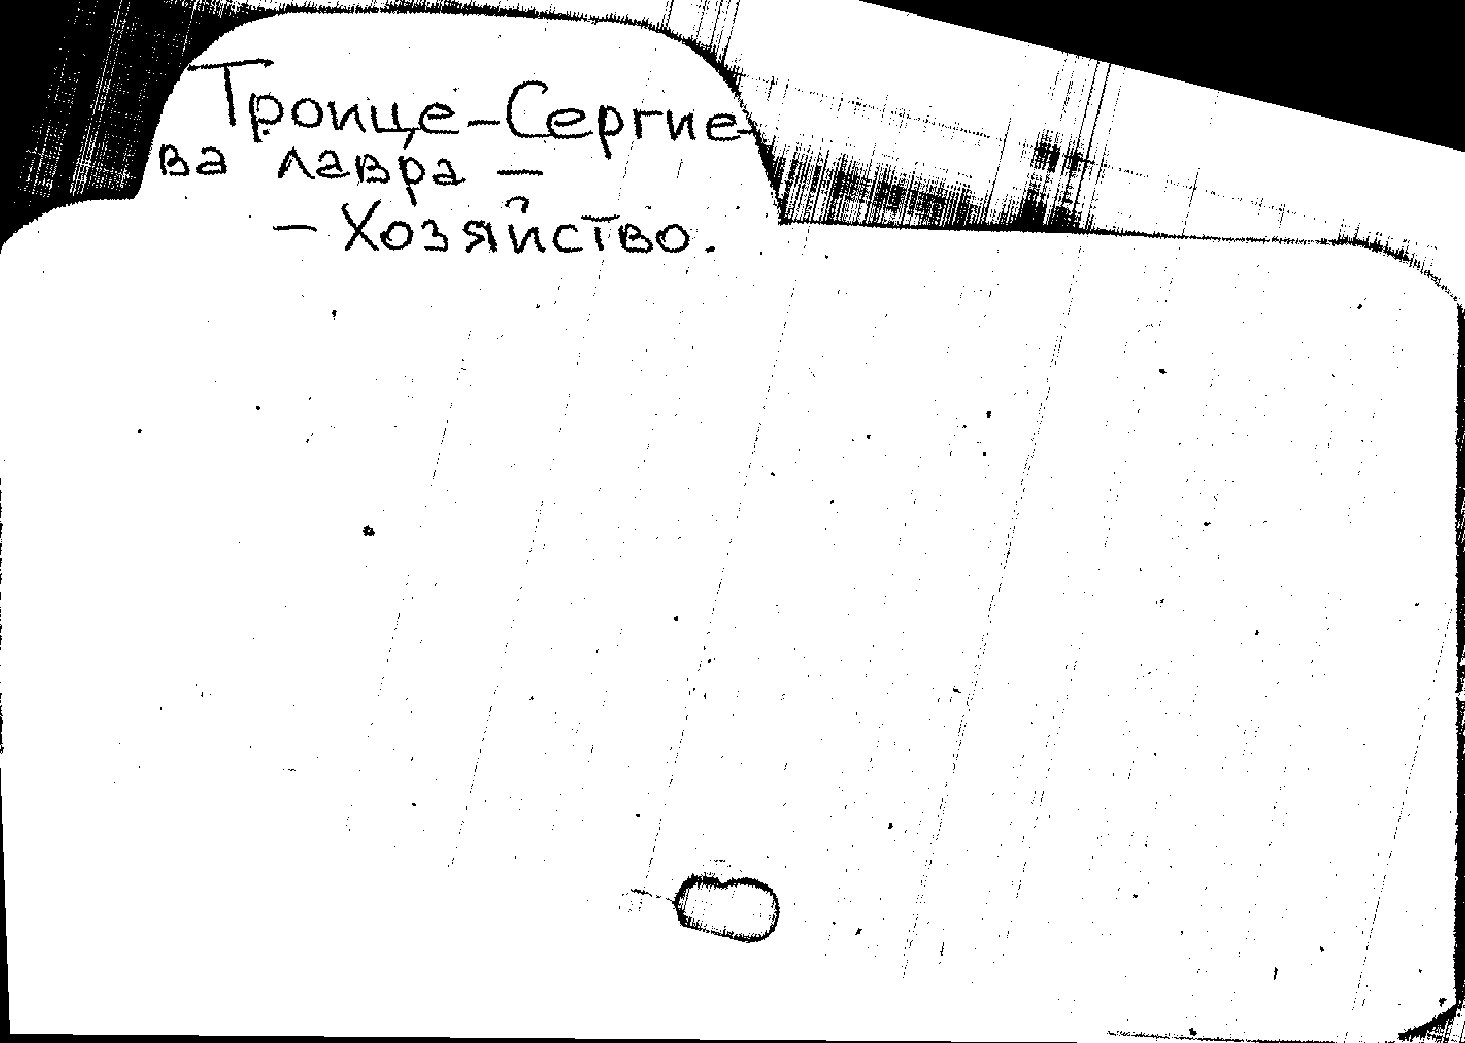 Троице-Сергие-
ва лавра -
- Хозяйство.